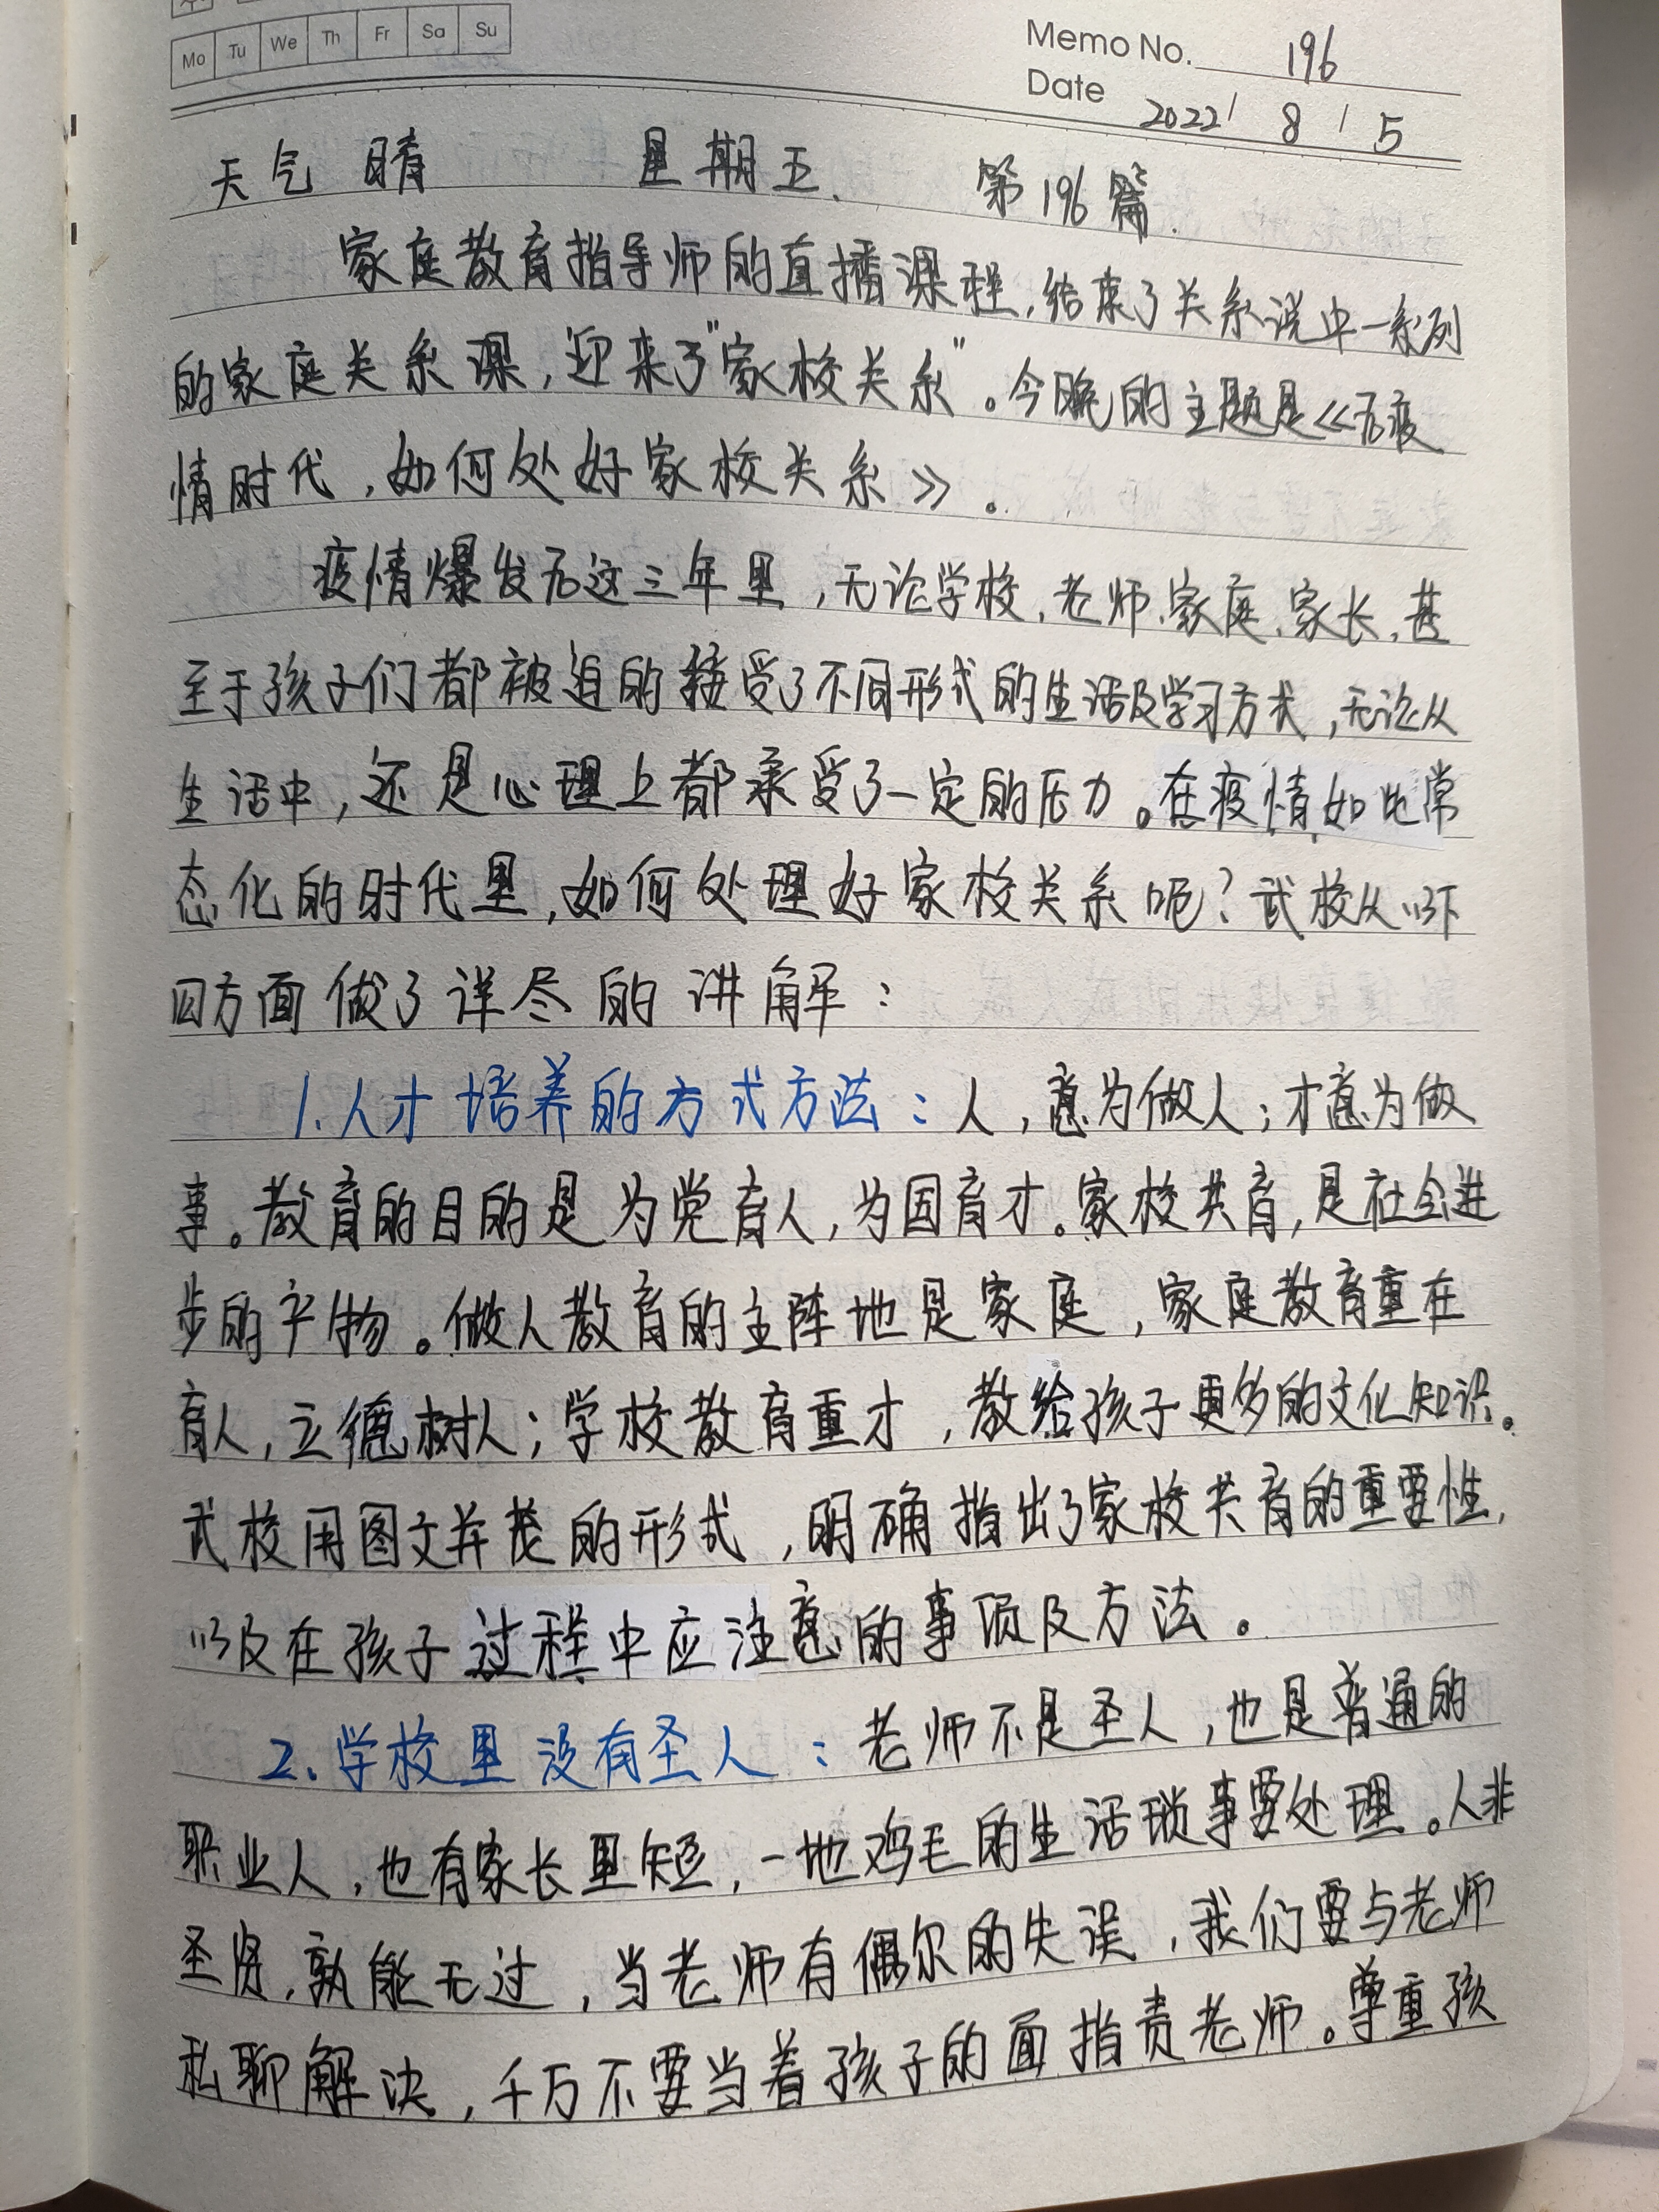 Mo Tu We Th Fr Sa Su
Memo No. 196
Date 2022 / 8 / 5
天气 晴 星期五. 第196篇.
家庭教育指导师的直播课程,结束了关系说中一系列
的家庭关系课,迎来了"家校关系"。今晚的主题是《后疫
情时代,如何处好家校关系》。
疫情爆发后这三年里,无论学校、老师、家庭、家长,甚
至于孩子们都被迫的接受了不同形式的生活及学习方式,无论从
生活中,还是心理上都承受了一定的压力。在疫情如此常
态化的时代里,如何处理好家校关系呢?武校从以下
四方面做了详尽的讲解:
1.人才培养的方式方法:人,意为做人;才意为做
事。教育的目的是为党育人,为国育才。家校共育,是社会进
步的产物。做人教育的主阵地是家庭,家庭教育重在
育人,立德树人;学校教育重才,教给孩子更多的文化知识。
武校用图文并茂的形式,明确指出了家校共育的重要性,
以及在孩子过程中应注意的事项及方法。
2.学校里没有圣人:老师不是圣人,也是普通的
职业人,也有家长里短,一地鸡毛的生活琐事要处理。人非
圣贤,孰能无过,当老师有偶尔的失误,我们要与老师
私聊解决,千万不要当着孩子的面指责老师。尊重孩